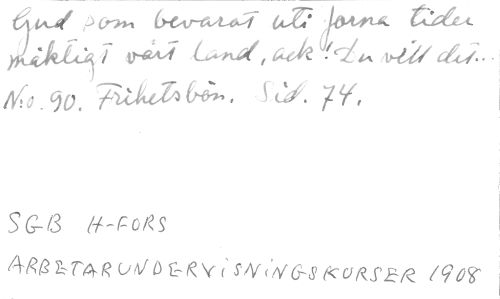 Gud som bevarat uti forna tider
mäktigt vårt land, ack! Du vill det...
N:o. 90. Frihetsbön. Sid. 74.
SGB H-FORS
ARBETARUNDERVISNINGSKURSER 1908